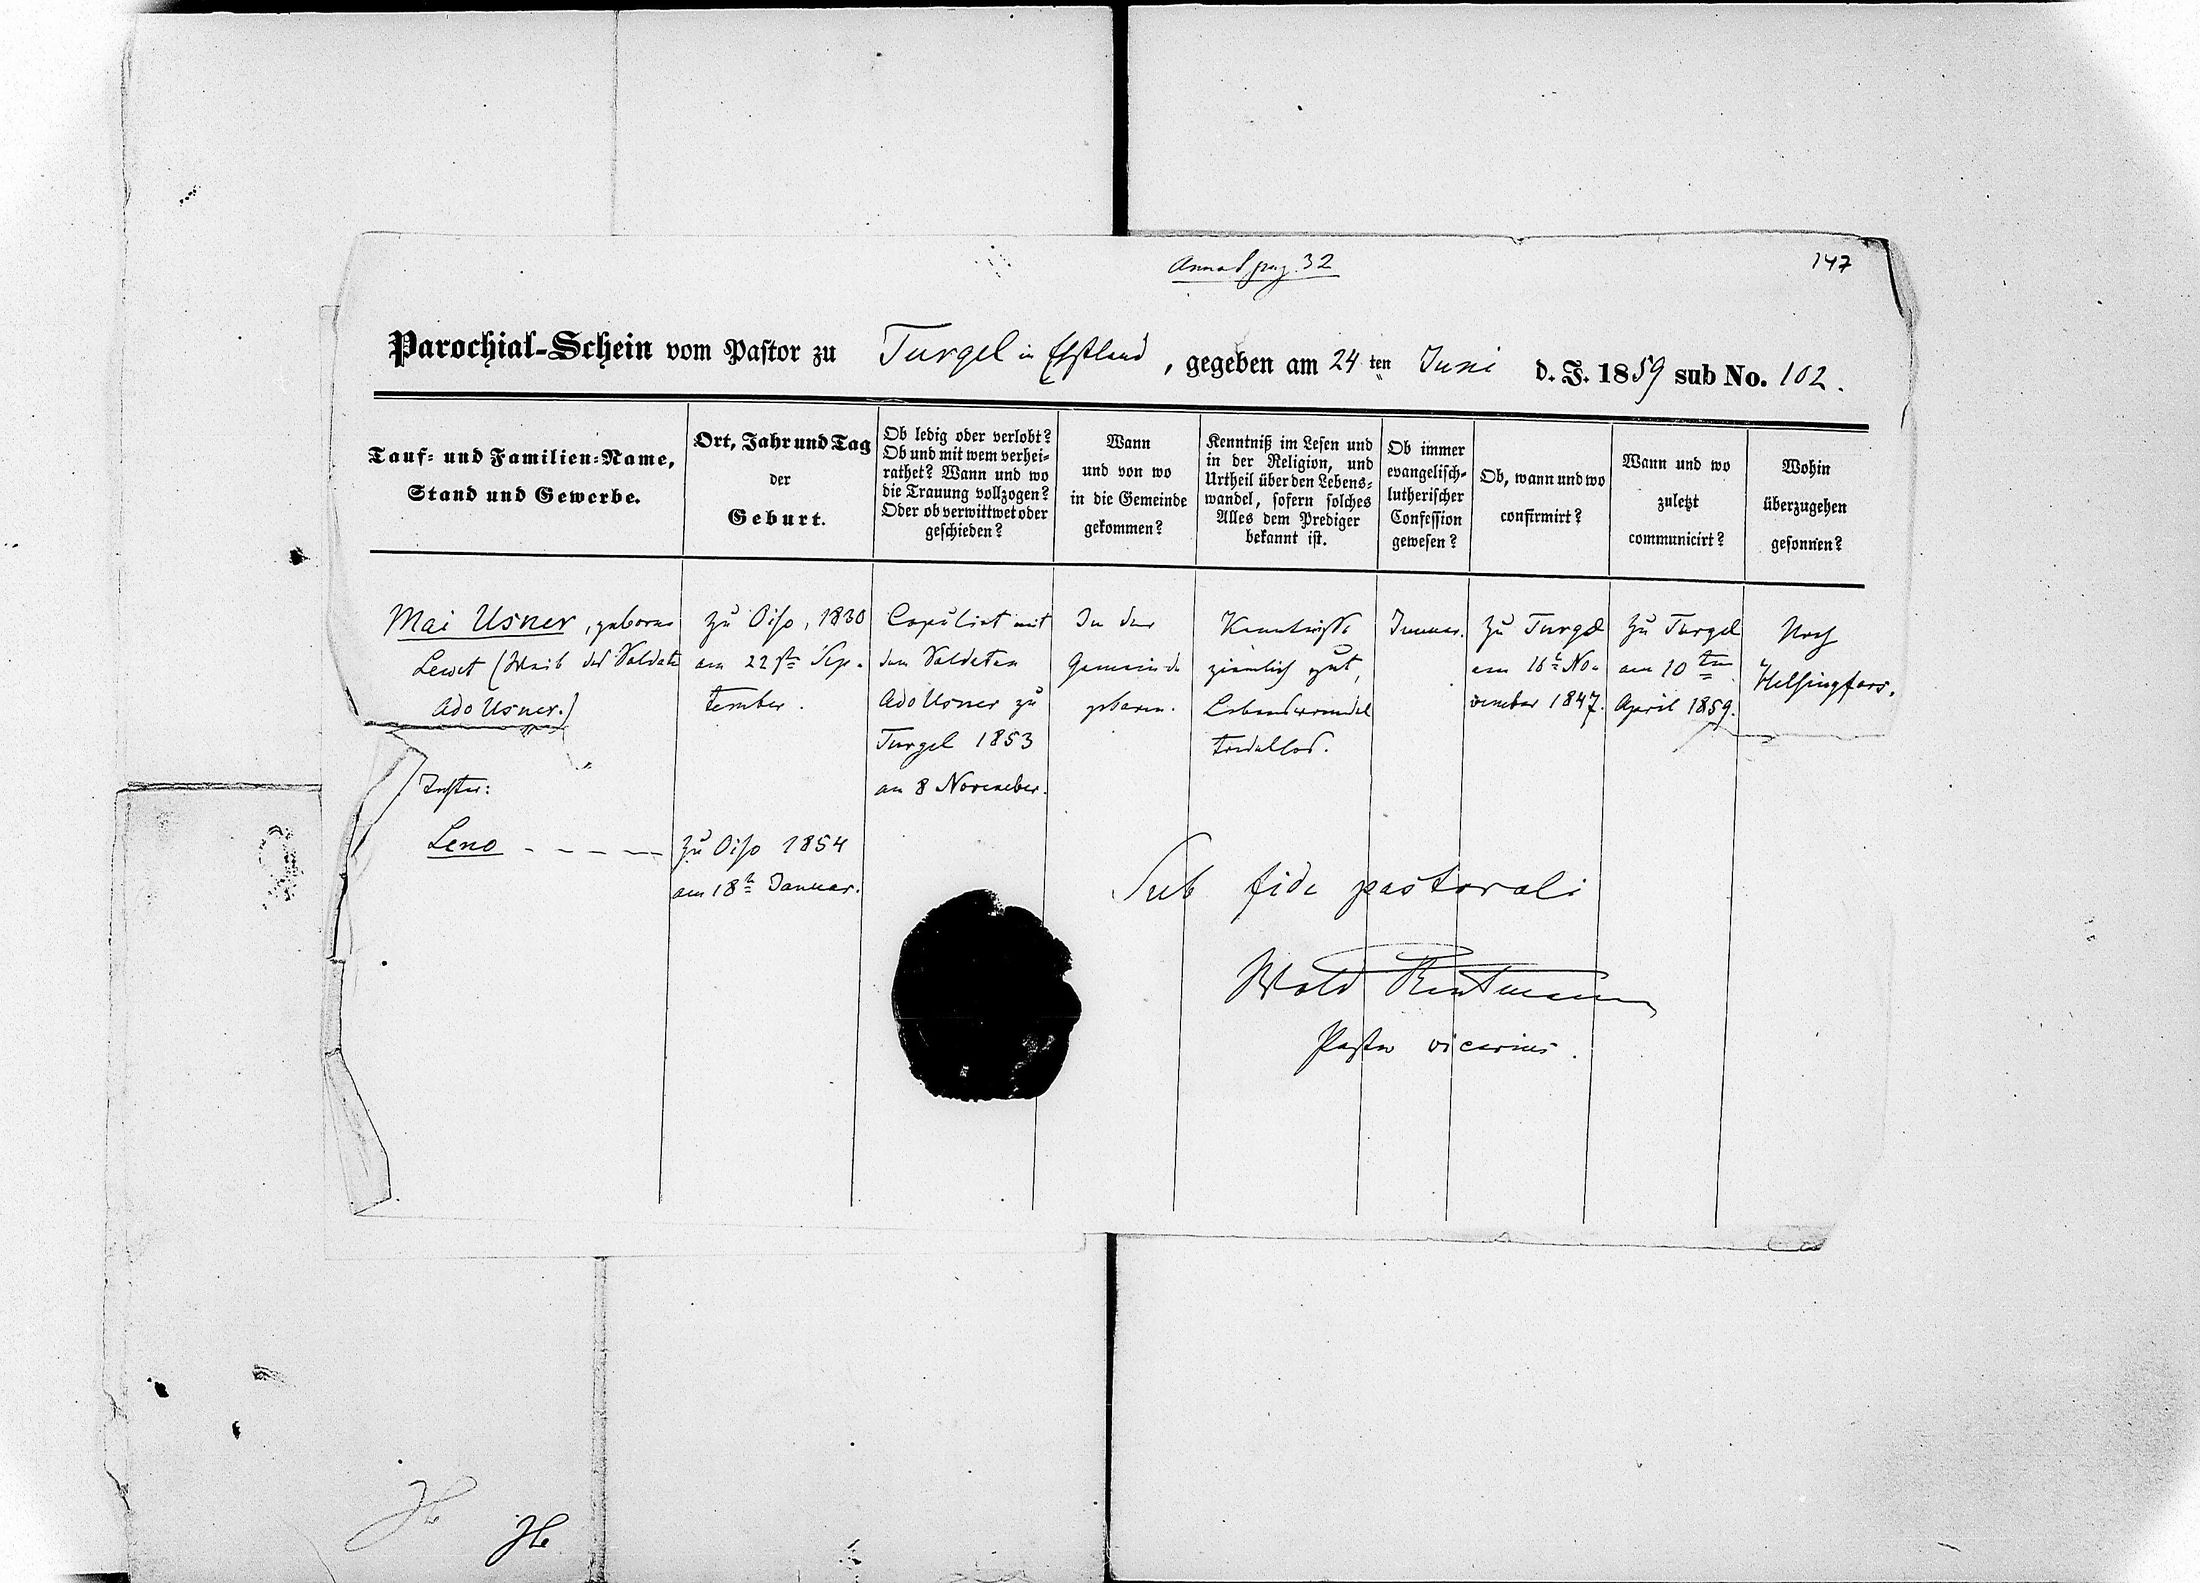 Annot pag. 32
147
Parochial-Schein vom Pastor zu Turgel in Ehstland, gegeben am 24 ten Juni d. J. 1859 sub No. 102.
Tauf- und Familien-Name,
Stand und Gewerbe.
Ort, Jahr und Tag
der
Geburt.
Ob ledig oder verlobt?
Ob und mit wem verhei-
rathet? Wann und wo
die Trauung vollzogen?
Oder ob verwittwet oder
geschieden?
Wann
und von wo
in die Gemeinde
gekommen?
Kenntniß im Lesen und
in der Religion, und
Urtheil über den Lebens-
wandel, sofern solches
Alles dem Prediger
bekannt ist.
Ob immer
evangelisch-
lutherischer
Confession
gewesen?
Ob, wann und wo
confirmirt?
Wann und wo
zuletzt
communicirt?
Wohin
überzugehen
gesonnen?
Mai Usner, geborne
Lewet (Weib des Soldate
Ado Usner.)
zu Oiso, 1830
am 22st Sep-
tember.
Copulirt mit
dem Soldaten
Ado Usner zu
Turgel 1853
am 8 November.
In der
Gemeinde
geboren.
Kenntnisse
ziemlich gut,
Lebenswandel
tadellos.
Immer.
Zu Turgel
am 16t No-
vember 1847.
Zu Turgel
am 10ten
April 1859.
Nach
Helsingfors.
Tochter:
Leno - - - -
zu Oiso 1854
am 18t Januar.
Sub fide pastorali
Wold
Pastor vicarius.